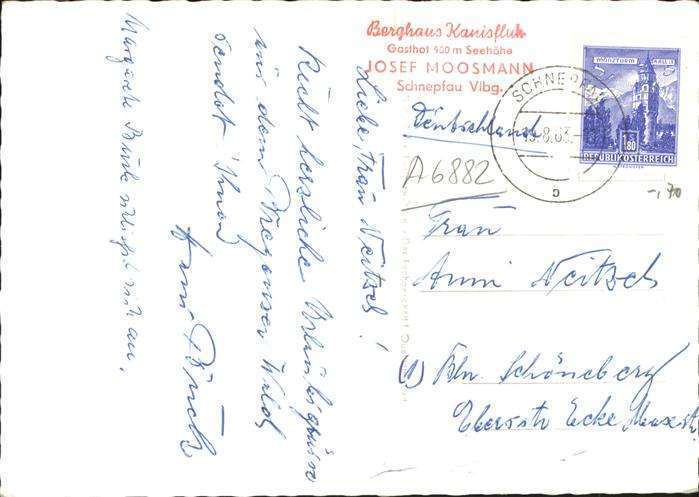 Berghaus Kanisfluh
Gasthof 900 m Seehöhe
JOSEF MOOSMANN
Schnepfau Vlbg.
MÜNZTURM HALL i. T.
S 1.80
REPUBLIK ÖSTERREICH
SCHNEPFAU
8.63.
b
Deutschland
A6882
-,70
Frau
Anni Neitzel
(1) Bln. Schöneberg
Ebersstr Ecke Maxstr.
Liebe Frau Neitzel!
Recht herzliche Urlaubsgrüsse
aus dem Bregenzer Wald
sendet Ihnen
Margarete schließt sich an.